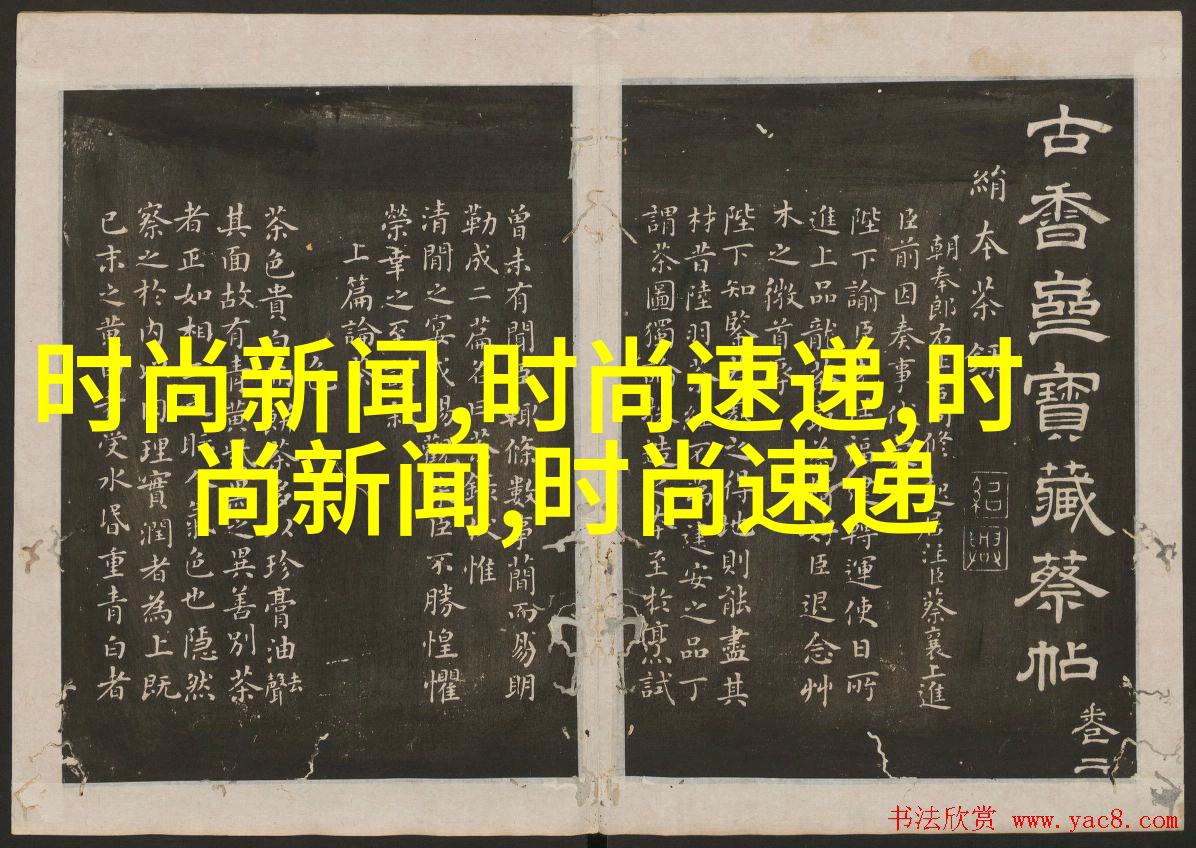 古香齋寶藏蔡帖 卷二
絹本茶錄
朝奉郎右正言同修起居注臣蔡襄上進
臣前因奏事伏
陛下諭臣福轉運使日所
進上品龍為臣退念艸
木之微首辱
陛下知鑒之得地則能盡其
材昔陸羽茶經不第建安之品丁
謂茶圖獨論造至於烹試
曾未有聞臣輒條數事簡而易明
勒成二篇名曰茶錄伏惟
清閒之宴或賜觀臣不勝惶懼
榮幸之至
上篇論茶
色
茶色貴白餅茶多以珍膏油去聲
其面故有青黃之異善別茶
者正如相人氣色也隱然
察之於內以肉理實潤者為上既
已末之黃白受水昏重青白者
时尚新闻,时尚速递,时
尚新闻,时尚速递
书法欣赏 www.yac8.com